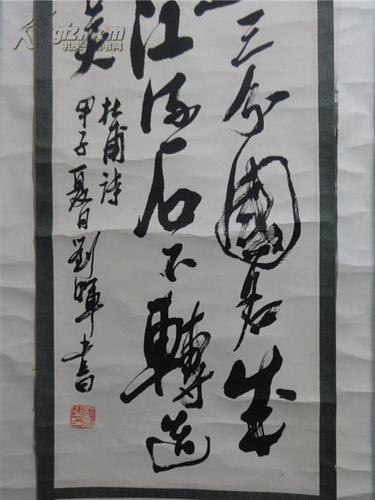 三分國名成
江流石不轉遺
吴
杜甫詩
甲子夏日劉暉書
孔夫子旧书网